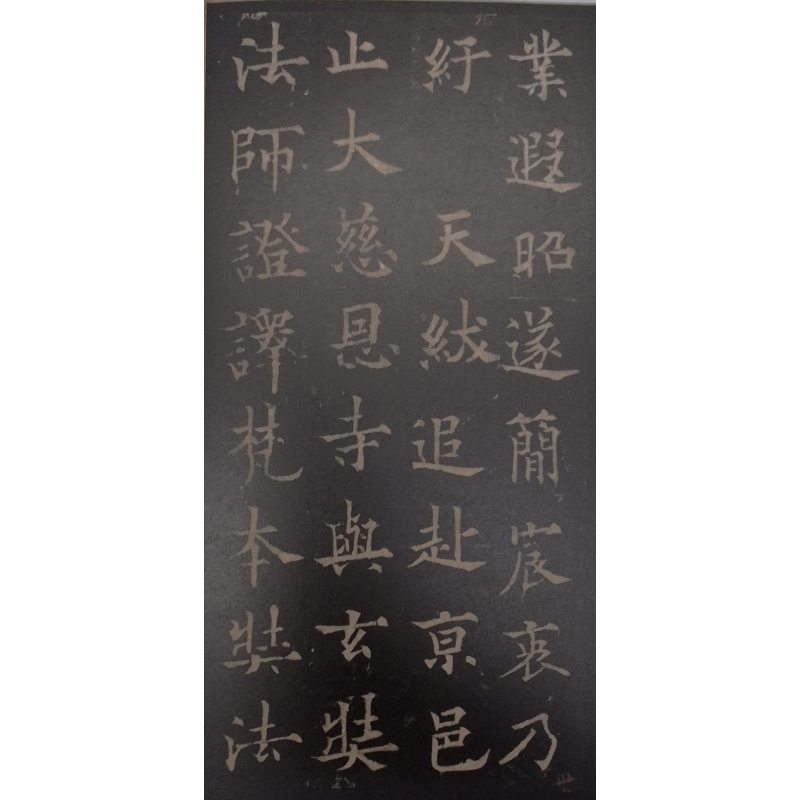 業遐昭遂簡宸衷乃
紆 天紱追赴亰邑
止大慈恩寺與玄奘
法師證譯梵本奘法